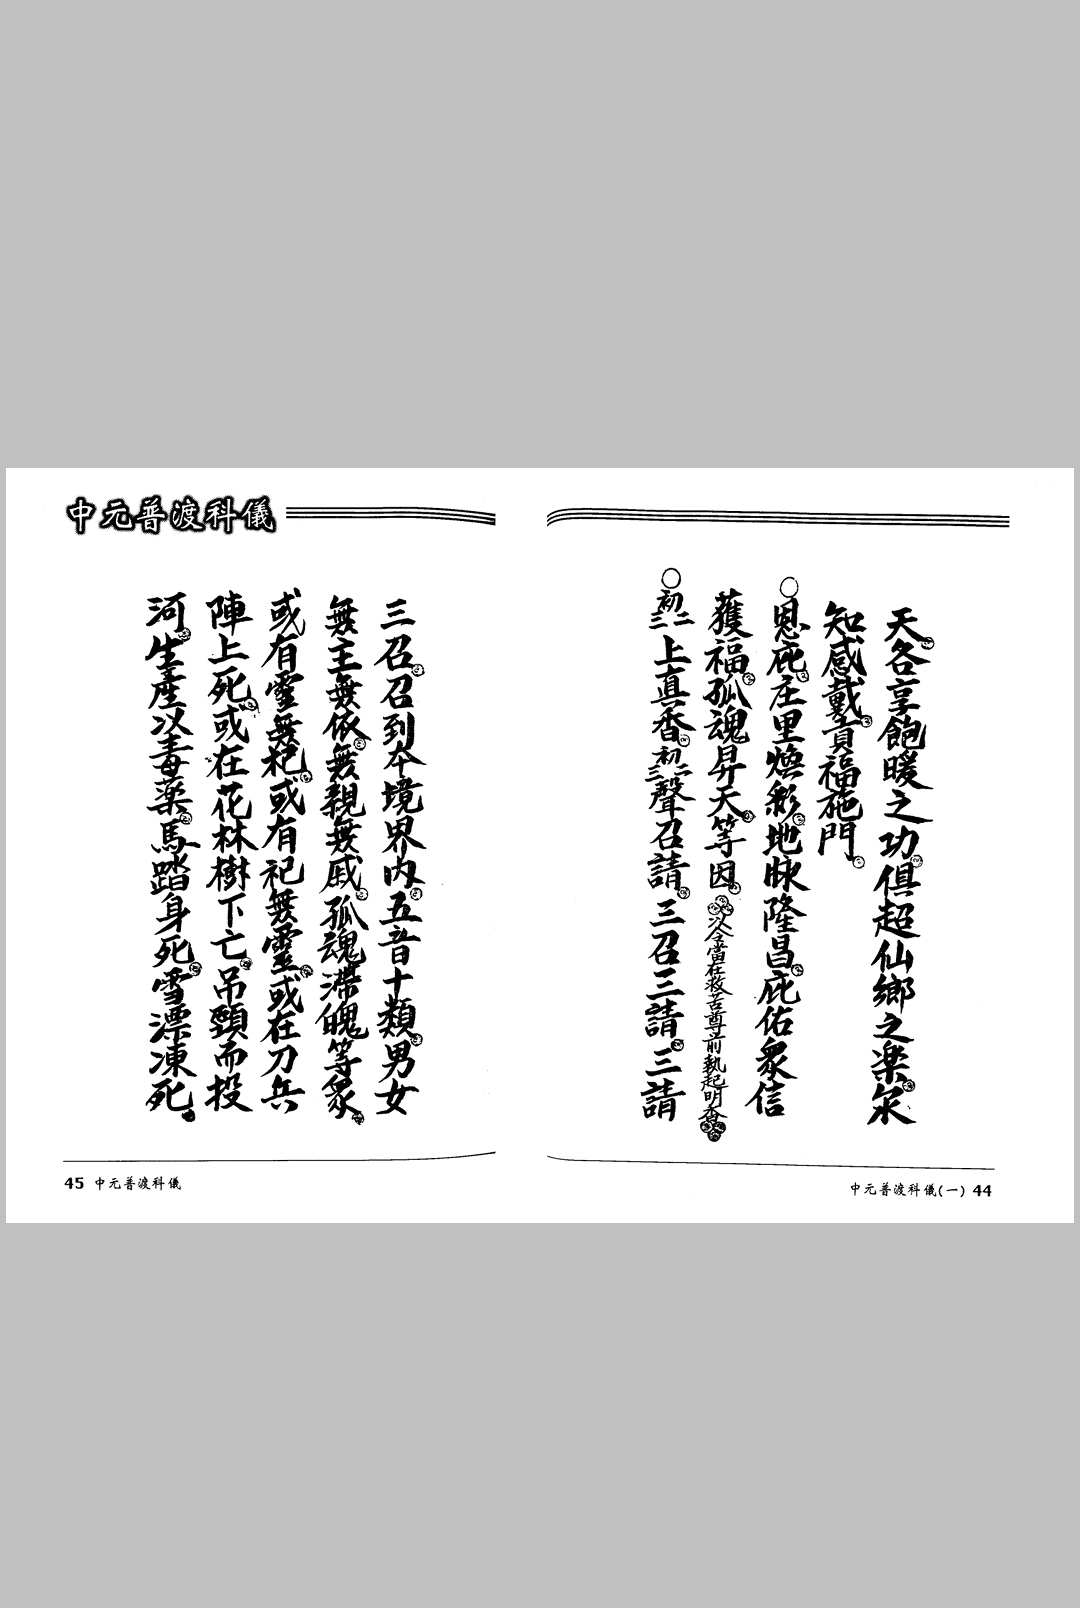 天各享飽暖之功俱超仙鄉之楽永
知感戴貢福施門
○恩庇庄里煥彩地脉隆昌庇佑衆信
獲福孤魂昇天等因 以今當在救苦尊前執起明香
○初二三上真香初二三聲召請三召三請三請
中元普渡科儀(一) 44
中元普渡科儀
三召召到本境界內五音十類男女
無主無依無親無戚孤魂滯魄等衆
或有靈無祀或有祀無靈或在刀兵
陣上死或在花林樹下亡吊頸而投
河生產以毒藥馬踏身死雪漂凍死
45 中元普渡科儀